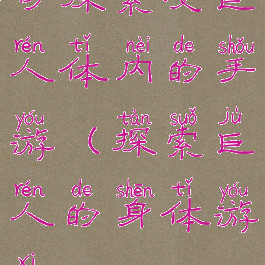 探索受巨
rén tǐ nèi de shǒu
人体内的手
yóu tàn suǒ jù
游（探索巨
rén de shēn tǐ yóu
人的身体游
xì